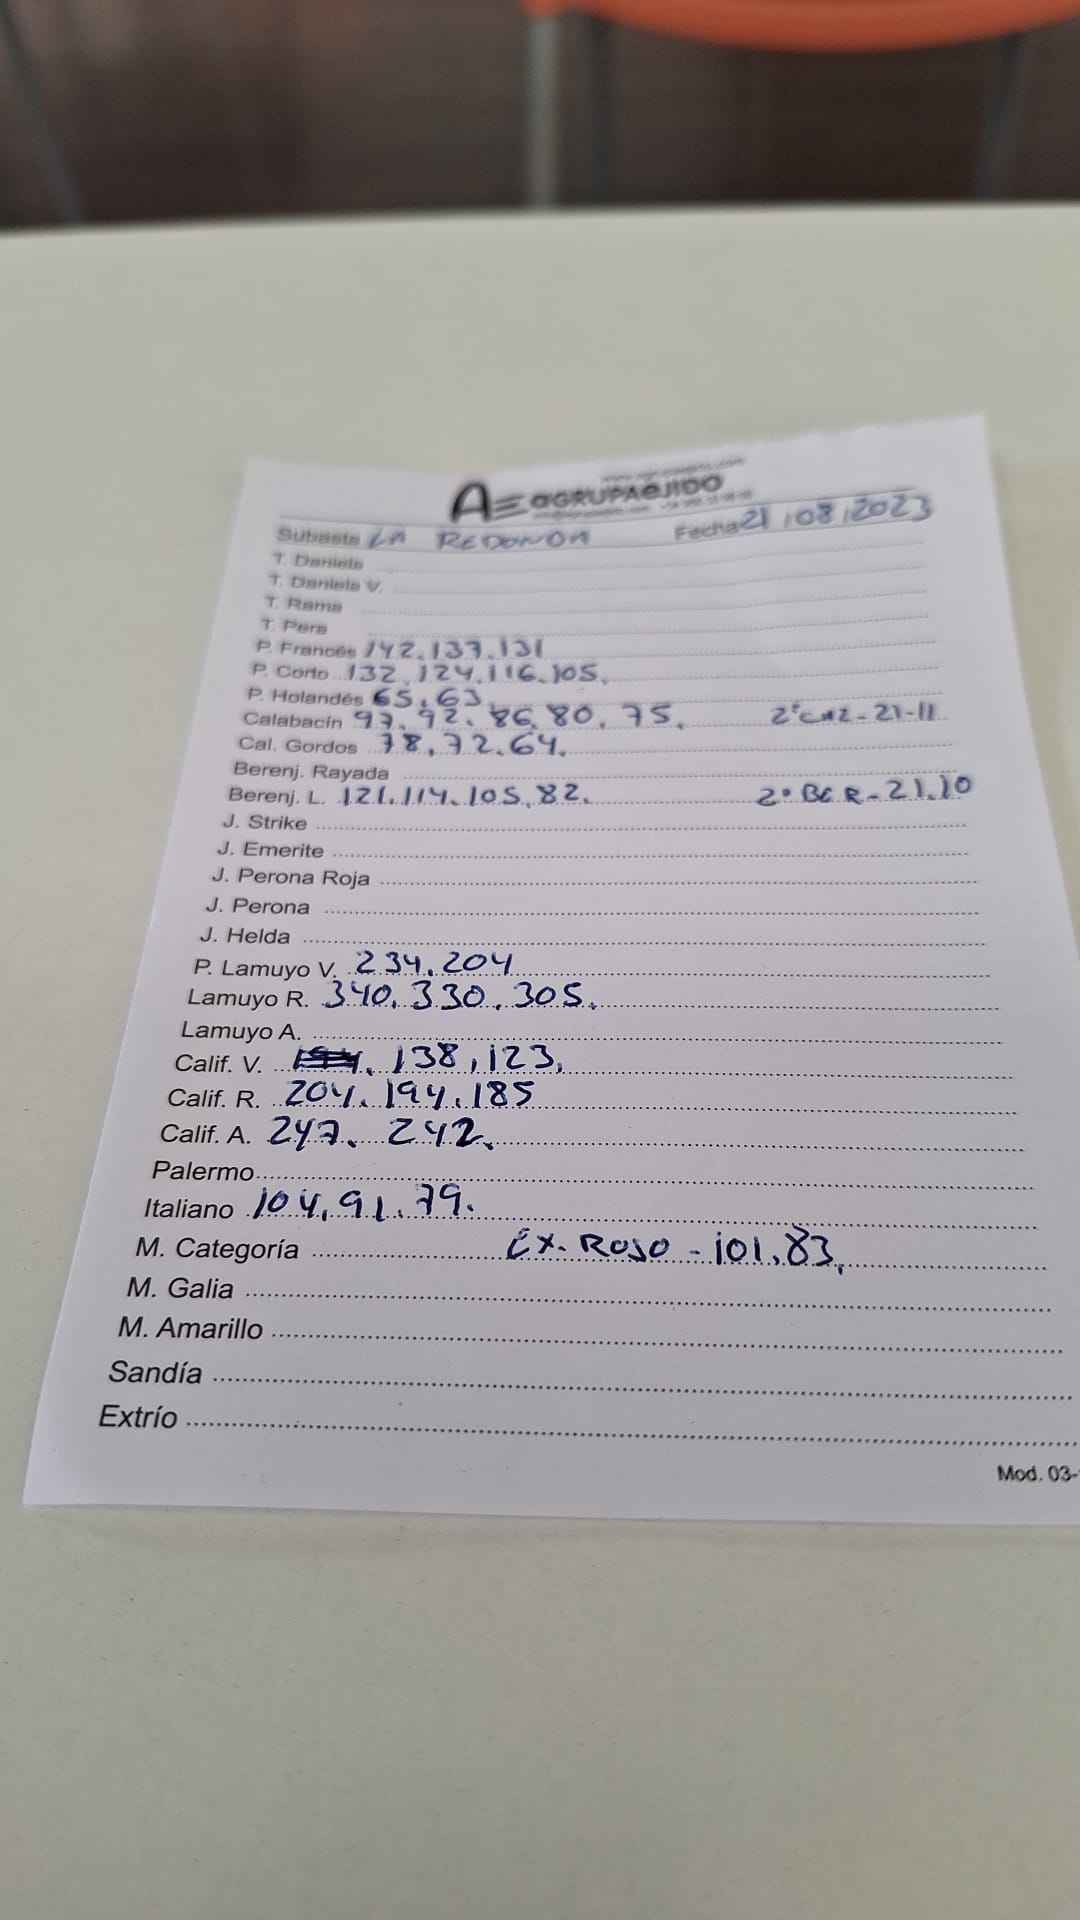 AGRUPAEJIDO
Subasta LA REDONDA Fecha 21/08/2023
T. Daniela
T. Daniela V.
T. Rama
T. Pera
P. Francés 142.137.131
P. Corto 132.124.116.105.
P. Holandés 65.63
Calabacín 97.92.86.80.75. 2ºCAL-21-11
Cal. Gordos 78.72.64.
Berenj. Rayada
Berenj. L. 121.114.105.82. 2º BER-21.10
J. Strike
J. Emerite
J. Perona Roja
J. Perona
J. Helda
P. Lamuyo V. 234.204
Lamuyo R. 340.330.305.
Lamuyo A.
Calif. V. 138,123.
Calif. R. 204.194.185
Calif. A. 247. 242.
Palermo
Italiano 104.91.79.
M. Categoría EX. ROJO - 101.83.
M. Galia
M. Amarillo
Sandía
Extrío
Mod. 03-